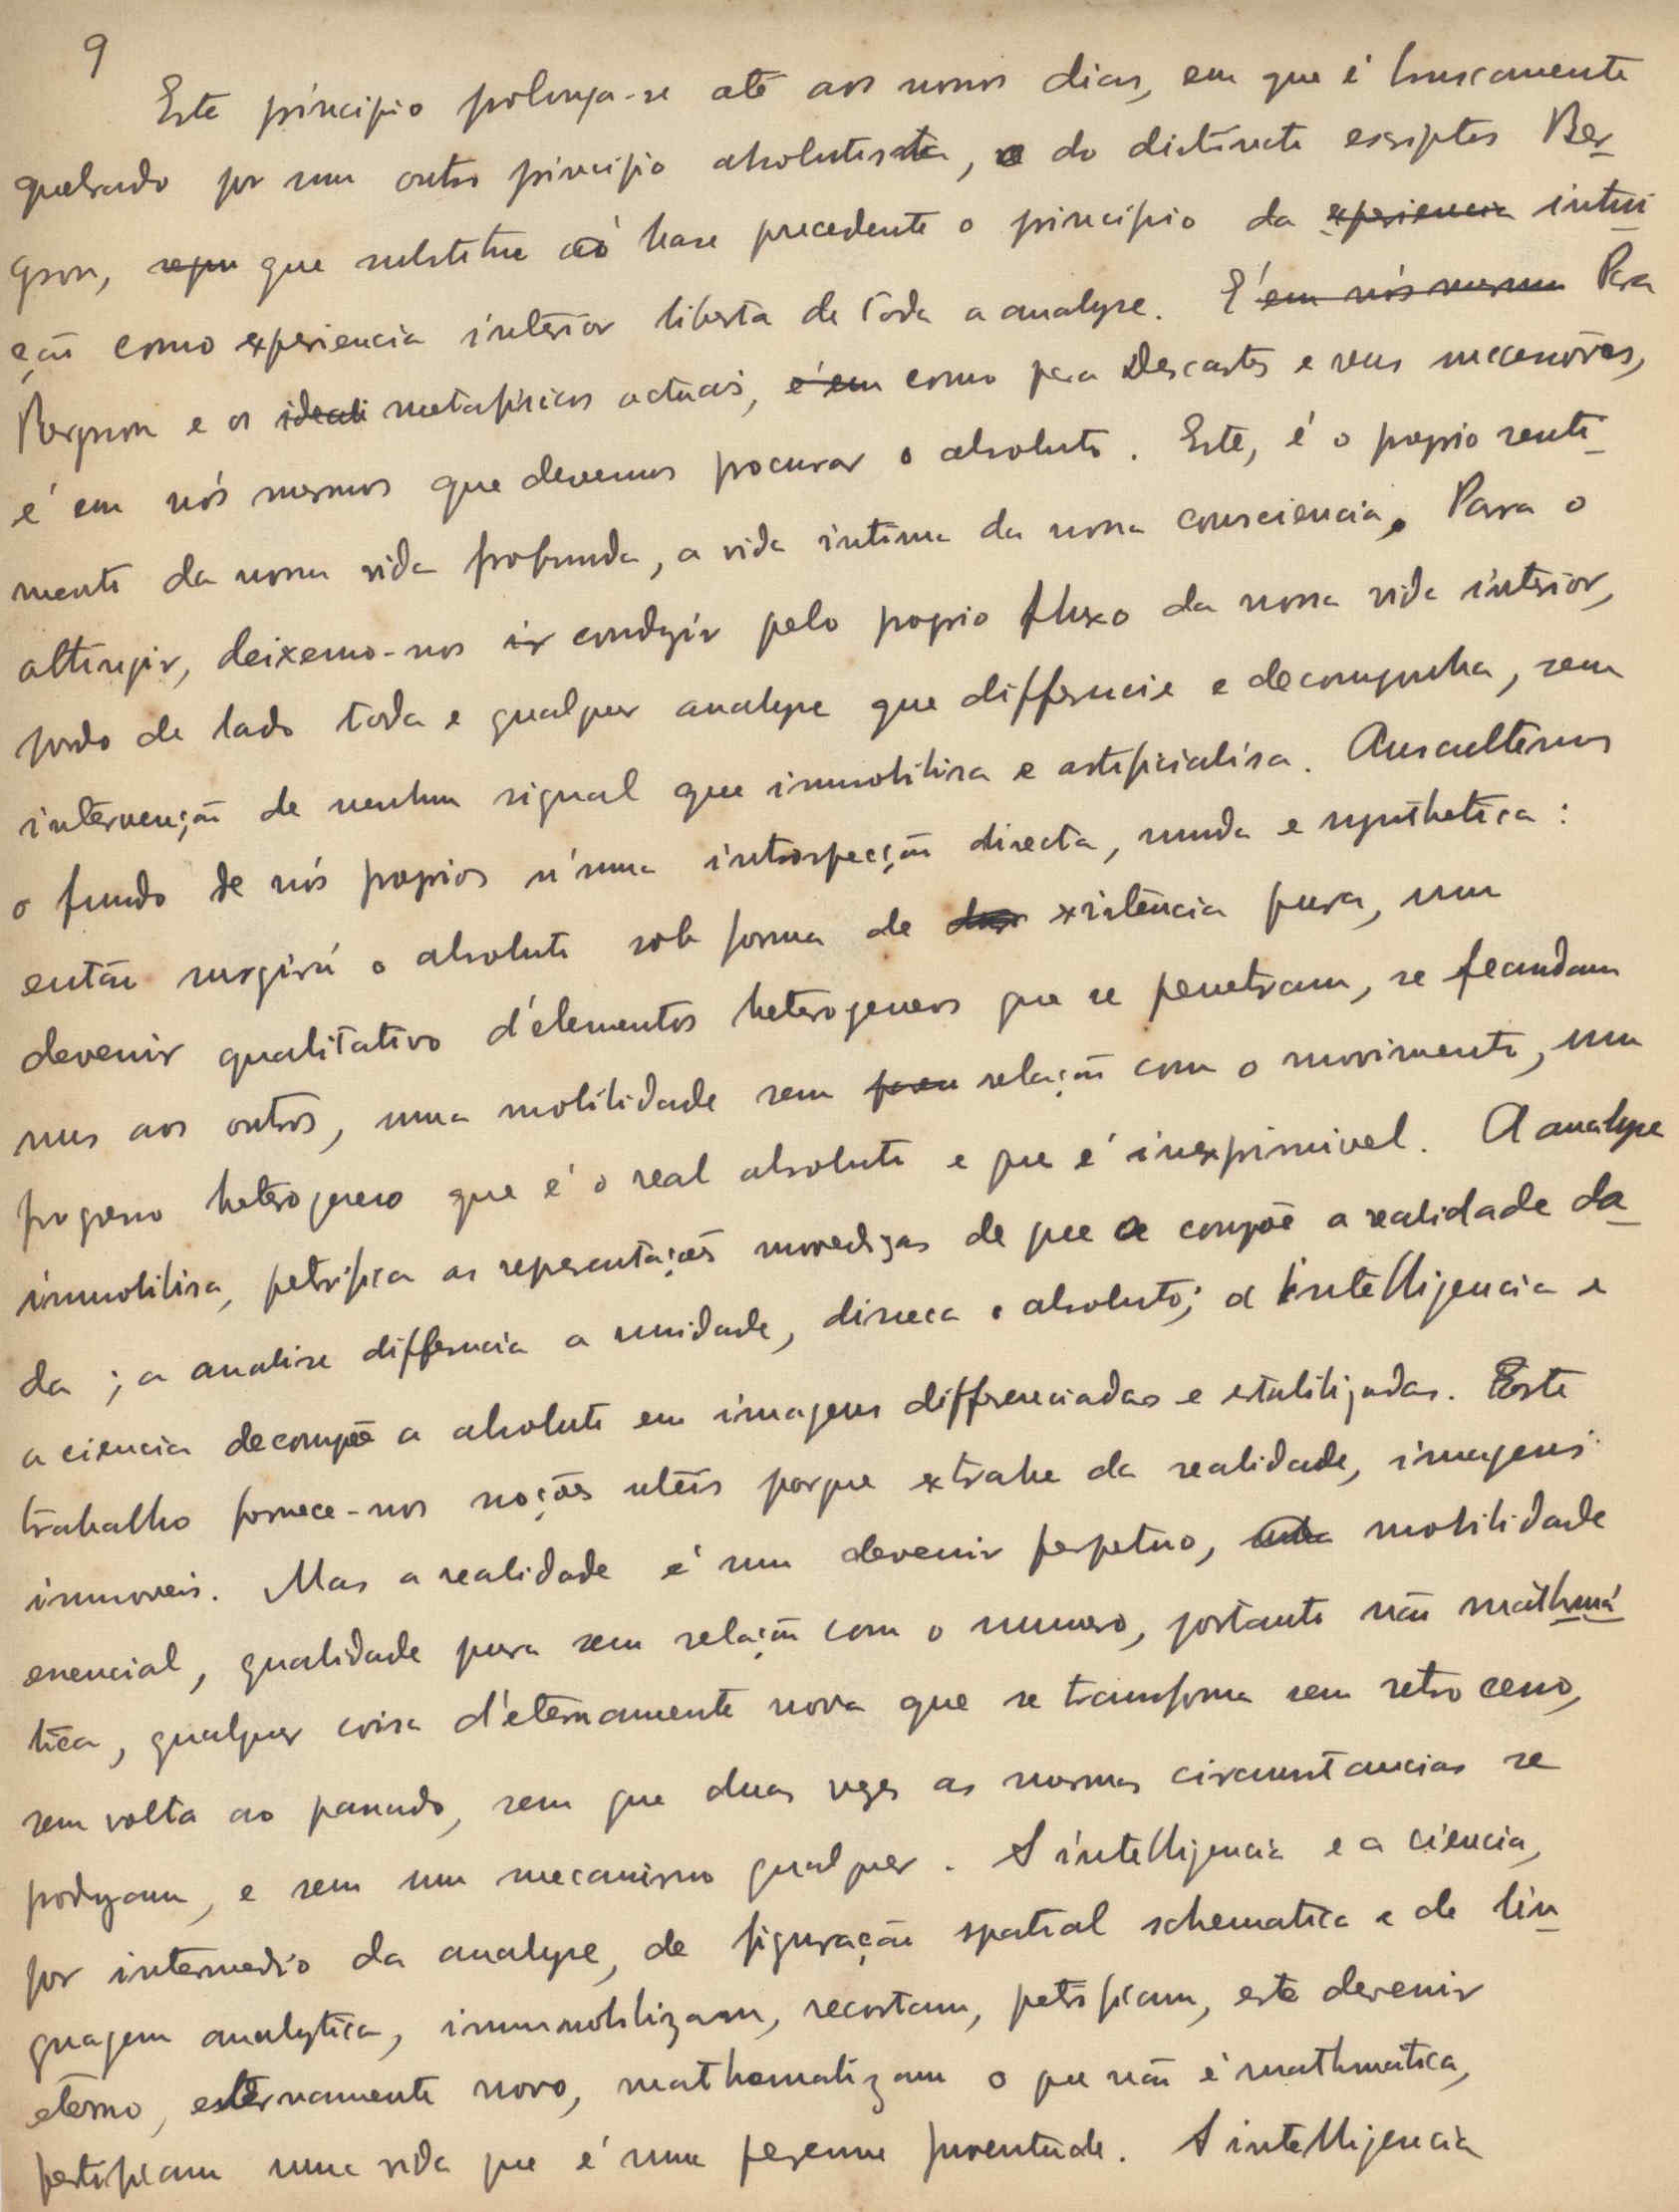 9
Este principio prolonga-se até aos nossos dias, em que é bruscamente
quebrado por um outro principio absolutista, o do distincto escriptor Ber-
gson, que substitue aó base precedente o principio da experiencia intui
ção como experiencia interior liberta de toda a analyse. E' em nós mesmos Para
Bergson e os ideali metafisicos actuais, é em como para Descartes e seus successores,
é em nós mesmos que devemos procurar o absoluto. Este, é o proprio senti-
mento da nossa vida profunda, a vida intima da nossa consciencia. Para o
attingir, deixemo-nos ir conduzir pelo proprio fluxo da nossa vida interior,
pondo de lado toda e qualquer analyse que differencie e decomponha, sem
intervenção de nenhum signal que immobilisa e artificialisa. Auscultemos
o fundo de nós proprios n'uma introspecção directa, muda e synthetica:
então surgirá o absoluto sob forma de existência pura, um
devenir qualitativo d'elementos heterogeneos que se penetram, se fecundam
uns aos outros, uma mobilidade sem relação com o movimento, um
progresso heterogeneo que é o real absoluto e que é inexprimivel. A analyse
immobilisa, petrifica as representações movediças de que se compõe a realidade da-
da; a analise differencia a unidade, disseca o absoluto; a intelligencia e
a ciencia decompõe o absoluto em imagens differenciadas e estabilizadas. Este
trabalho fornece-nos noções uteis porque extrahe da realidade, imagens
immoveis. Mas a realidade é um devenir perpetuo, uma mobilidade
essencial, qualidade pura sem relação com o numero, portanto não mathmá
tica, qualquer coisa d'eternamente nova que se transforma sem retrocesso,
sem volta ao passado, sem que duas vezes as mesmas circumstancias se
produzam, e sem um mecanismo qualquer. A intelligencia e a ciencia,
por intermedio da analyse, de figuração spatial schematica e de lin-
guagem analytica, immmobilizam, recortam, petrificam, este devenir
eterno, eternamente novo, mathematizam o que não é mathmatica,
petrificam uma vida que é uma perenne juventude. A intelligencia